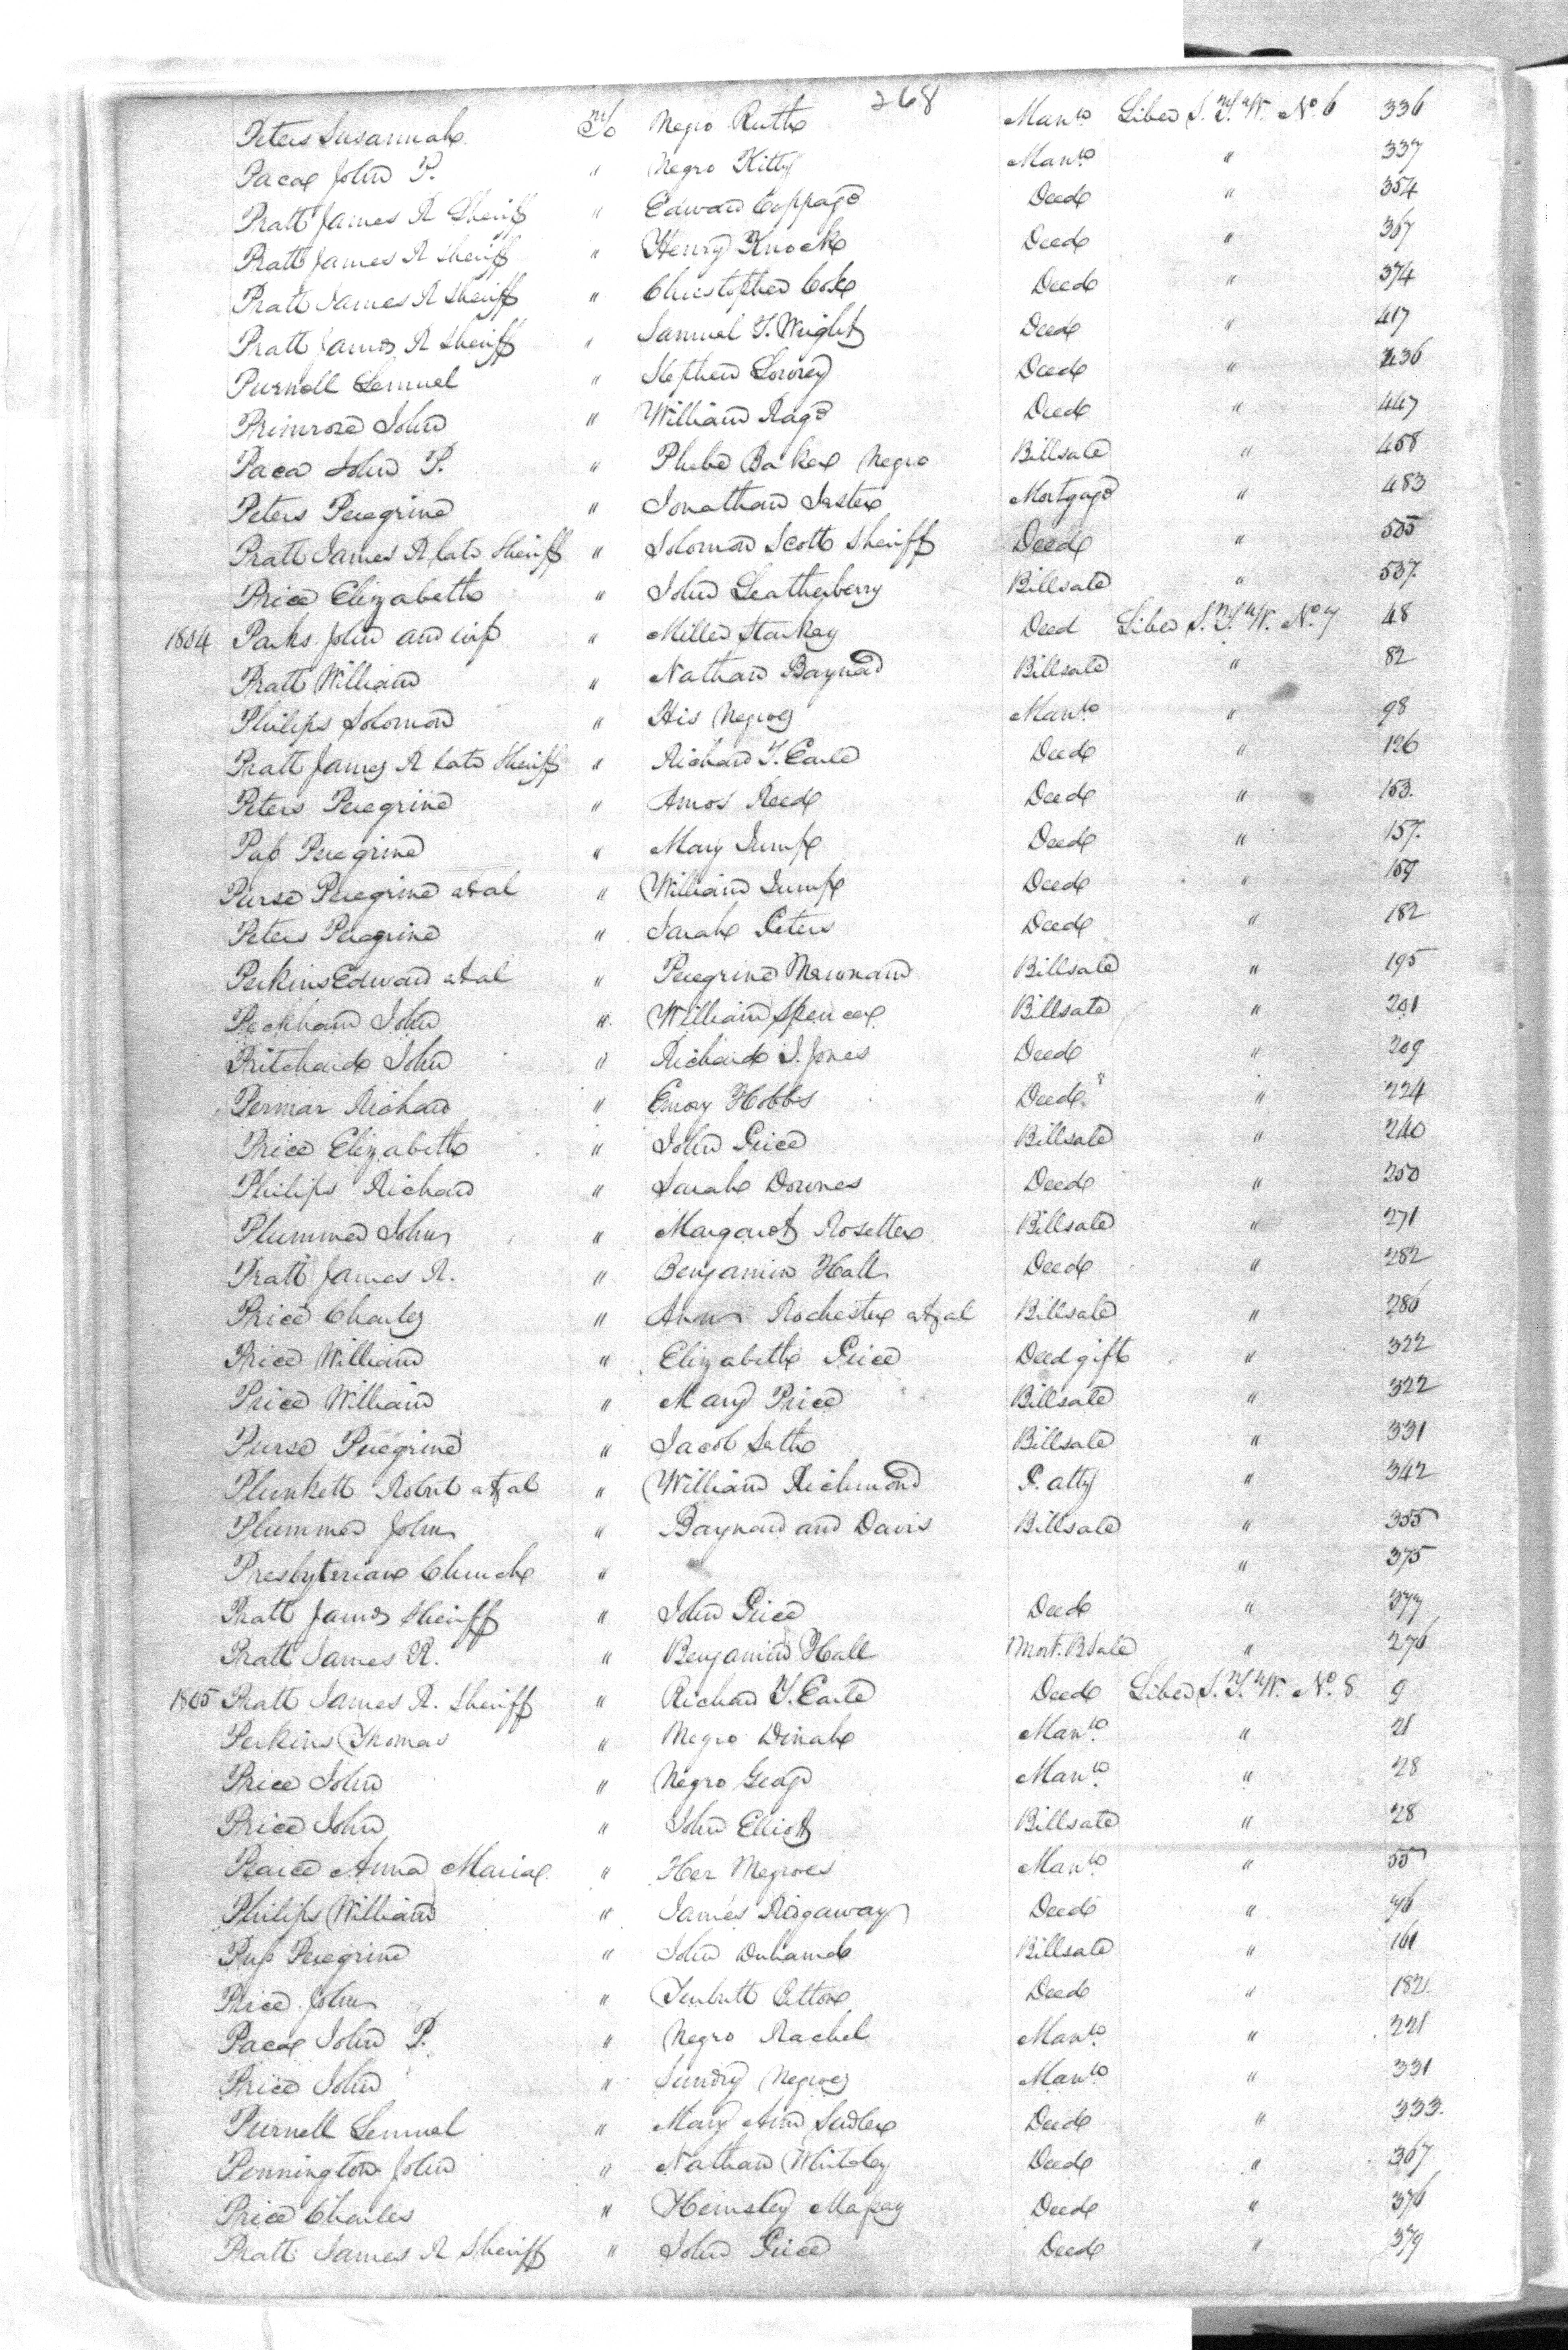 268
Peters Susannah To Negro Ruth Manⁿ Liber S.T.W. No. 6 336
Paca John P. " Negro Kitty Manⁿ " 337
Pratt James R Sheriff " Edward Coppage Deed " 354
Pratt James R Sheriff " Henry Knock Deed " 367
Pratt James R Sheriff " Christopher Cox Deed " 374
Pratt James R Sheriff " Samuel T. Wright Deed " 417
Purnell Lemuel " Stephen Lowrey Deed " 436
Primrose John " William Rage Deed " 447
Paca John P. " Phebe Baker Negro Billsale " 458
Peters Peregrine " Jonathan Jester Mortgage " 483
Pratt James R late Sheriff " Solomon Scott Sheriff Deed " 505
Price Elizabeth " John Leatherberry Billsale " 537.
1804 Parks John and wife " Miller Starkey Deed Liber S.T.W. No. 7 48
Pratt William " Nathan Baynard Billsale " 82
Philips Solomon " His Negroes Manⁿ " 98
Pratt James R late Sheriff " Richard T. Earle Deed " 126
Peters Peregrine " Amos Reed Deed " 153.
Peregrine " Mary Jump Deed " 157.
Purse Peregrine et al " William Jump Deed " 159
Peters Peregrine " Sarah Peters Deed " 182
Perkins Edward et al " Peregrine Billsale " 195
Peckham John " William Spencer Billsale " 201
Pritchard John " Richard I. Jones Deed " 209
Permar Richard " Emory Hobbs Deed " 224
Price Elizabeth " John Price Billsale " 240
Philips Richard " Sarah Downes Deed " 250
Plummer John " Margaret Rosetter Billsale " 271
Pratt James R. " Benjamin Hall Deed " 282
Price Charles " Ann Rochester et al Billsale " 286
Price William " Elizabeth Price Deed gift " 322
Price William " Mary Price Billsale " 322
Purse Peregrine " Jacob Seth Billsale " 331
Plunkett Robert et al " William Richmond P. atty " 342
Plummer John " Baynard and Davis Billsale " 355
Presbyterian Church " " 375
Pratt James Sheriff " John Price Deed " 377
Pratt James R. " Benjamin Hall Mort. B Sale " 276
1805 Pratt James R. Sheriff " Richard T. Earle Deed Liber S.T.W. No. 8 9
Perkins Thomas " Negro Dinah Manⁿ " 21
Price John " Negro George Manⁿ " 28
Price John " John Elliott Billsale " 28
Pearce Anna Maria " Her Negroes Manⁿ " 55
Philips William " James Ridgaway Deed " 96
Peregrine " John Duhamel Billsale " 161
Price John " Turbutt Betton Deed " 182.
Paca John P. " Negro Rachel Manⁿ " 221
Price John " Sundry Negroes Manⁿ " 331
Purnell Lemuel " Mary Ann Sudler Deed " 333.
Pennington John " Nathan Whitby Deed " 367
Price Charles " Hemsley Massey Deed " 376
Pratt James R Sheriff " John Price Deed " 379